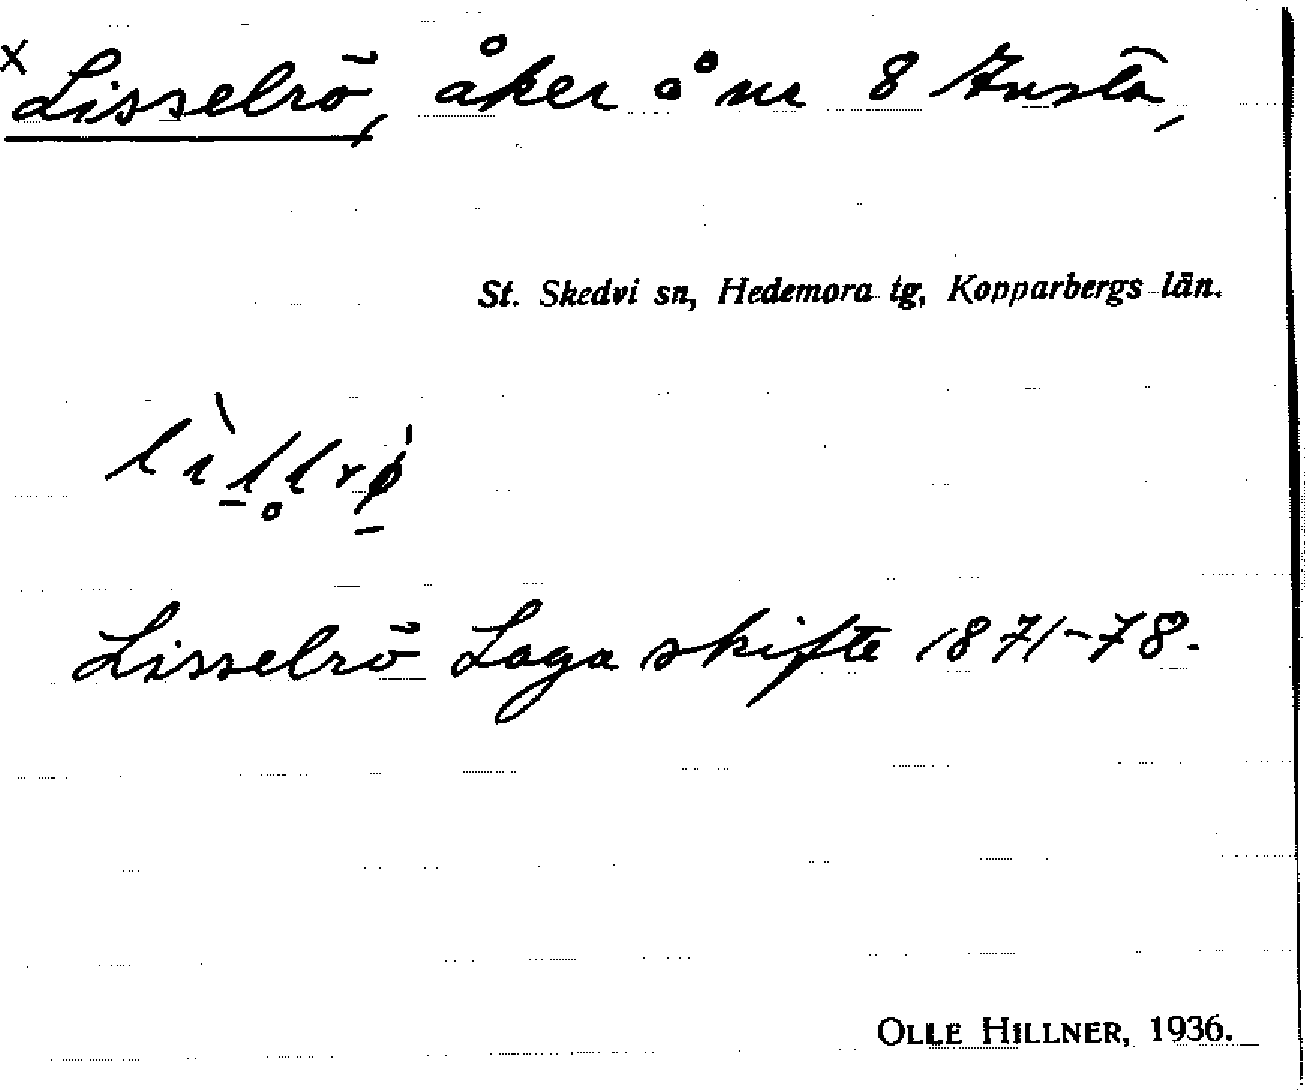 x Lisselrö, åker å nr 8 Fustä,
St. Skedvi sn, Hedemora tg, Kopparbergs län.
Lisselrö Laga skifte 1871-78.
OLLE HILLNER, 1936.